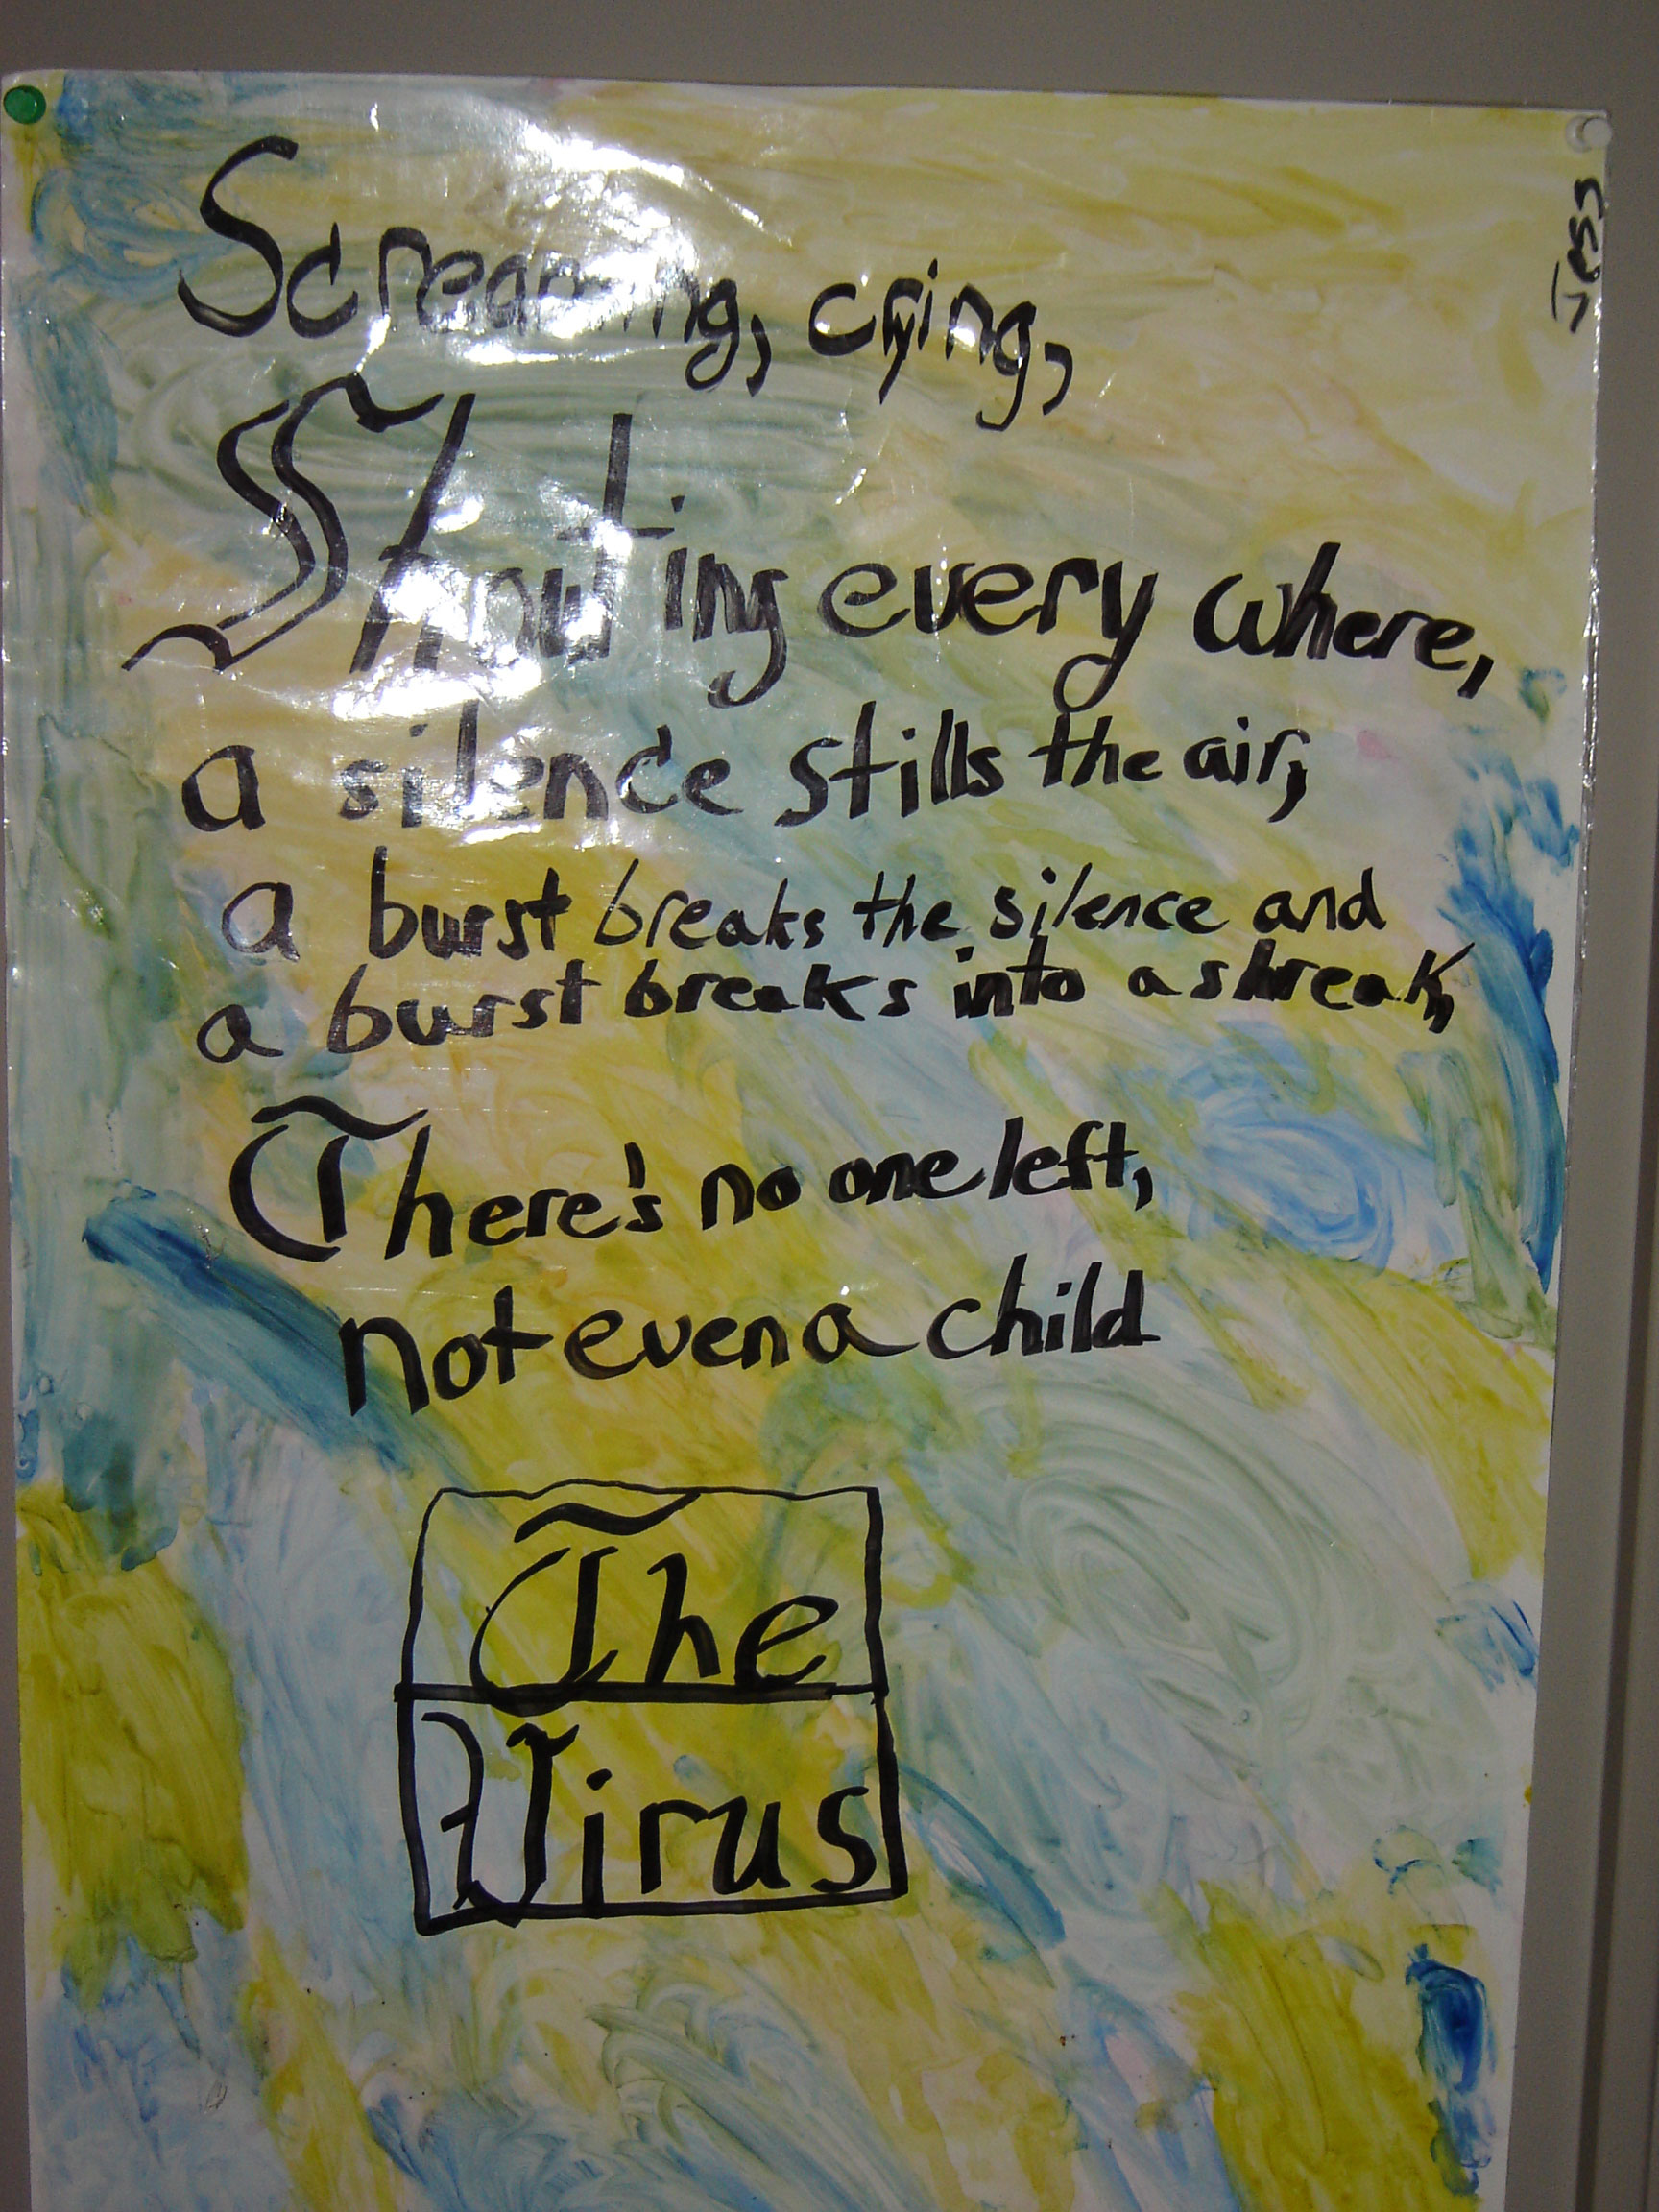 Jess
Screaming, crying,
Shouting every where,
a silence stills the air,
a burst breaks the silence and
a burst breaks into a shreak,
There's no one left,
not even a child
The
Virus